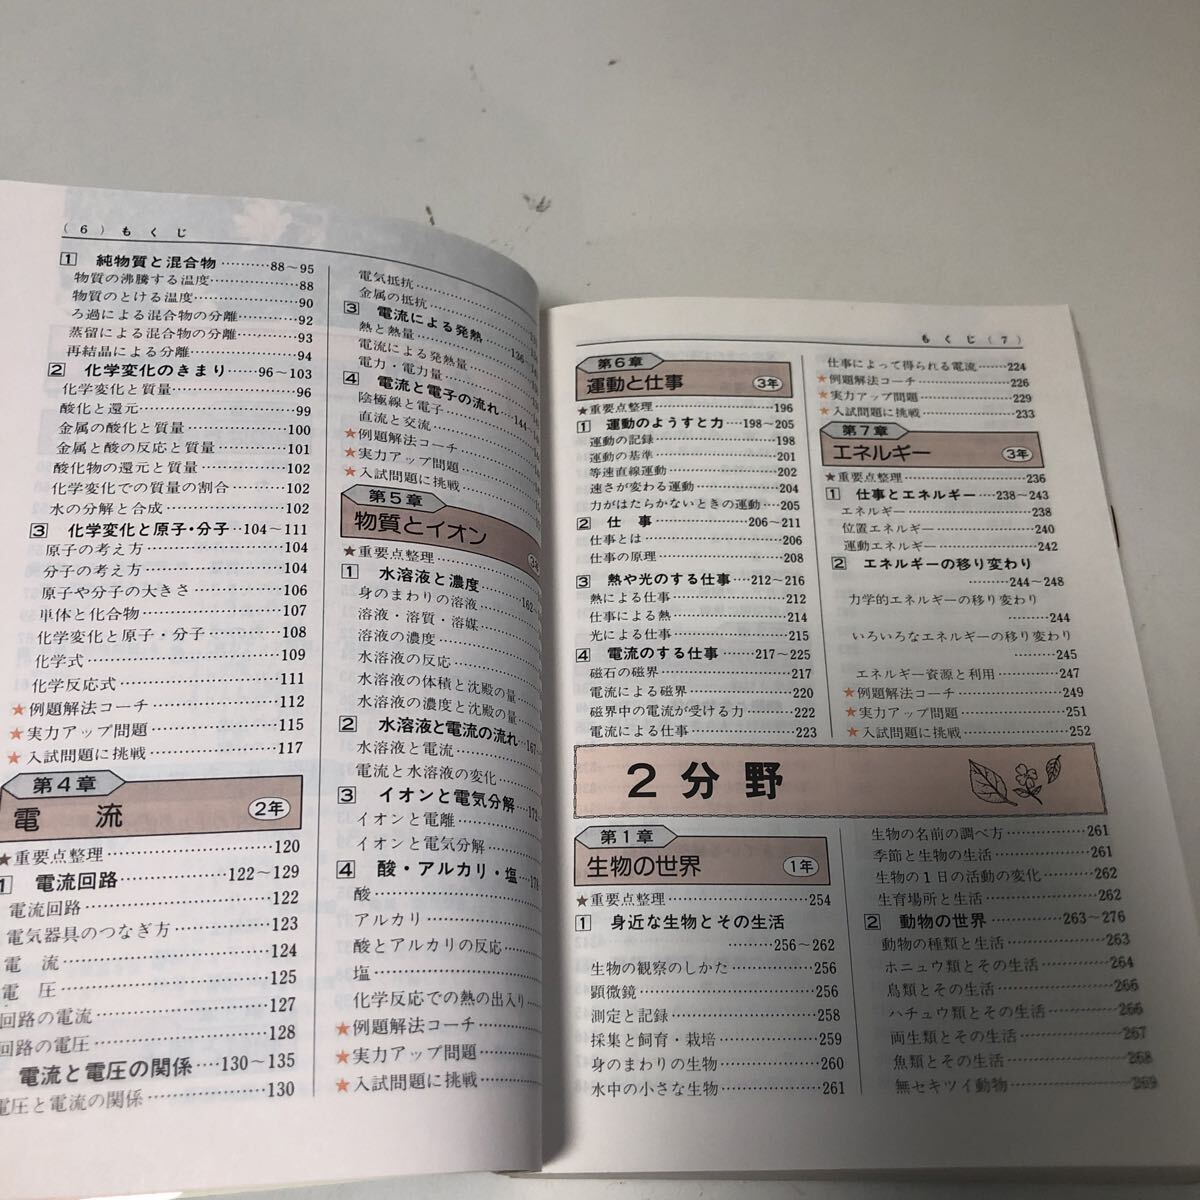 (6) もくじ
1 純物質と混合物………88～95
物質の沸騰する温度………88
物質のとける温度………90
ろ過による混合物の分離………92
蒸留による混合物の分離………93
再結晶による分離………94
2 化学変化のきまり……96～103
化学変化と質量………96
酸化と還元………99
金属の酸化と質量………100
金属と酸の反応と質量………101
酸化物の還元と質量………102
化学変化での質量の割合………102
水の分解と合成………102
3 化学変化と原子・分子…104～111
原子の考え方………104
分子の考え方………104
原子や分子の大きさ………106
単体と化合物………107
化学変化と原子・分子………108
化学式………109
化学反応式………111
★例題解法コーチ………112
★実力アップ問題………115
★入試問題に挑戦………117
第4章
電 流 2年
★重要点整理………120
1 電流回路………122～129
電流回路………122
電気器具のつなぎ方………123
電 流………124
電 圧………125
回路の電流………127
回路の電圧………128
電流と電圧の関係……130～135
電圧と電流の関係………130
電気抵抗
金属の抵抗
3 電流による発熱………136
熱と熱量
電流による発熱量
電力・電力量
4 電流と電子の流れ…144～
陰極線と電子
直流と交流
★例題解法コーチ
★実力アップ問題
★入試問題に挑戦
第5章
物質とイオン
★重要点整理
1 水溶液と濃度………162
身のまわりの溶液
溶液・溶質・溶媒
溶液の濃度
水溶液の反応
水溶液の体積と沈殿の量
水溶液の濃度と沈殿の量
2 水溶液と電流の流れ…167
水溶液と電流
電流と水溶液の変化
3 イオンと電気分解…172
イオンと電離
イオンと電気分解
4 酸・アルカリ・塩…178
酸
アルカリ
酸とアルカリの反応
塩
化学反応での熱の出入り
★例題解法コーチ
★実力アップ問題
★入試問題に挑戦
もくじ (7)
第6章
運動と仕事 3年
★重要点整理………196
1 運動のようすと力…198～205
運動の記録………198
運動の基準………201
等速直線運動………202
速さが変わる運動………204
力がはたらかないときの運動…205
2 仕 事………206～211
仕事とは………206
仕事の原理………208
3 熱や光のする仕事…212～216
熱による仕事………212
仕事による熱………214
光による仕事………215
4 電流のする仕事……217～225
磁石の磁界………217
電流による磁界………220
磁界中の電流が受ける力……222
電流による仕事………223
仕事によって得られる電流……224
★例題解法コーチ………226
★実力アップ問題………229
★入試問題に挑戦………233
第7章
エネルギー 3年
★重要点整理………236
1 仕事とエネルギー…238～243
エネルギー………238
位置エネルギー………240
運動エネルギー………242
2 エネルギーの移り変わり
………244～248
力学的エネルギーの移り変わり
………244
いろいろなエネルギーの移り変わり
………245
エネルギー資源と利用………247
★例題解法コーチ………249
★実力アップ問題………251
★入試問題に挑戦………252
2分野
第1章
生物の世界 1年
★重要点整理………254
1 身近な生物とその生活
………256～262
生物の観察のしかた………256
顕微鏡………256
測定と記録………258
採集と飼育・栽培………259
身のまわりの生物………260
水中の小さな生物………261
生物の名前の調べ方………261
季節と生物の生活………261
生物の1日の活動の変化………262
生育場所と生活………262
2 動物の世界………263～276
動物の種類と生活………263
ホニュウ類とその生活………264
鳥類とその生活………266
ハチュウ類とその生活………266
両生類とその生活………267
魚類とその生活………268
無セキツイ動物………269